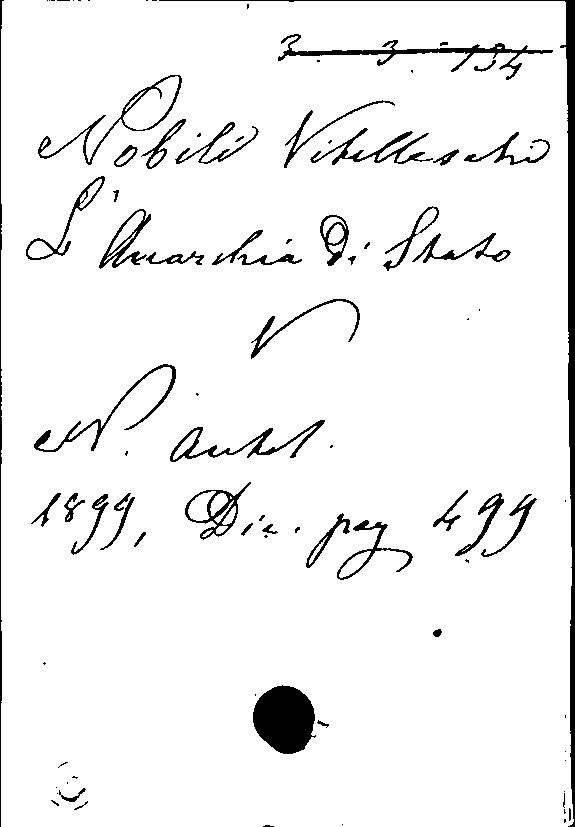 3. 3. 134
Nobili Vitelleschi
L'Anarchia Di Stato
V
N. Antol.
1899, Dic. pag 499